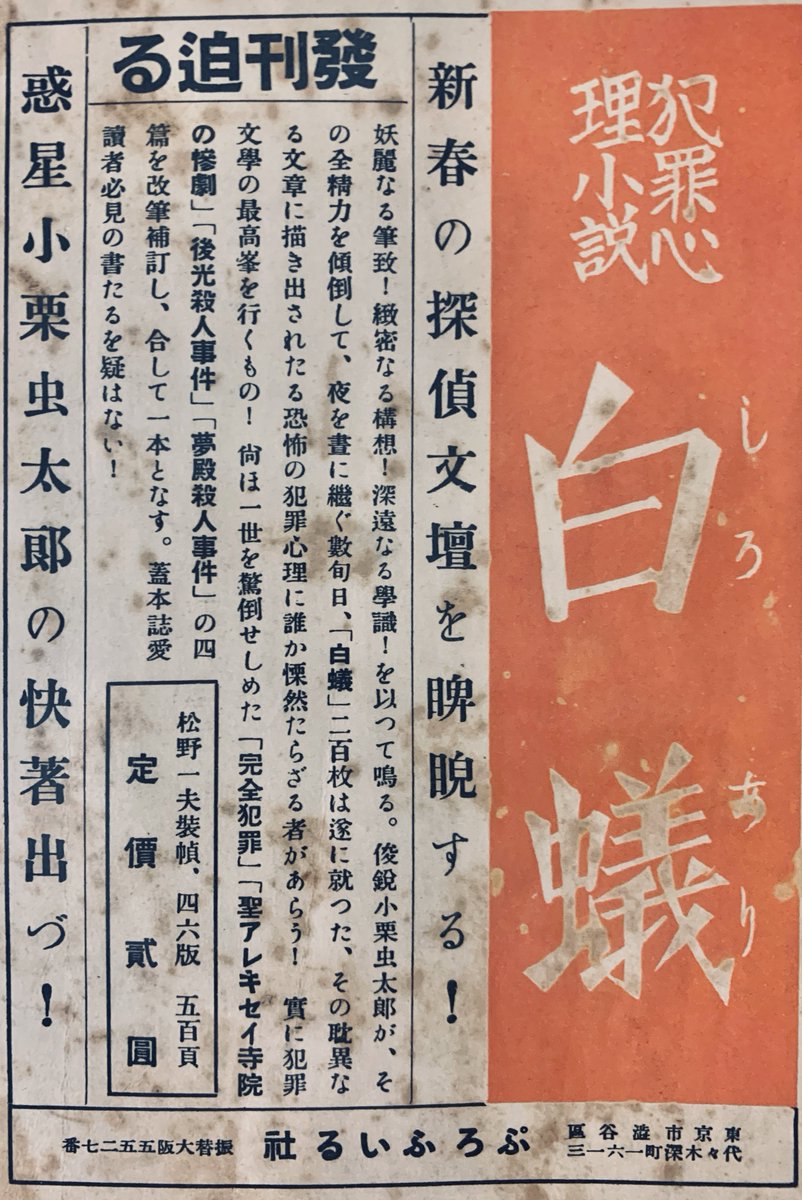 犯罪心
理小説
白蟻
しろあり
新春の探偵文壇を睥睨する！
發刊迫る
妖麗なる筆致！緻密なる構想！深遠なる學識！を以つて鳴る。俊鋭小栗虫太郎が、そ
の全精力を傾倒して、夜を晝に繼ぐ數旬日、「白蟻」二百枚は遂に就つた、その耽異な
る文章に描き出されたる恐怖の犯罪心理に誰か慄然たらざる者があらう！　實に犯罪
文學の最高峯を行くもの！　尙ほ一世を驚倒せしめた「完全犯罪」「聖アレキセイ寺院
の慘劇」「後光殺人事件」「夢殿殺人事件」の四
篇を改筆補訂し、合して一本となす。蓋本誌愛
讀者必見の書たるを疑はない！
松野一夫裝幀、四六版　五百頁
定價貳圓
惑星小栗虫太郎の快著出づ！
東京市澁谷區
代々木深町一六一三
ぷろふいる社
振替大阪五五二七番